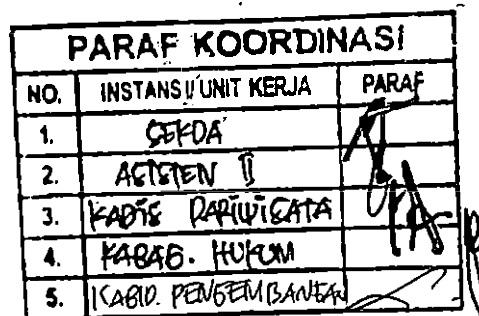 PARAF KOORDINASI
NO. INSTANSI/UNIT KERJA PARAF
1. SEKDA
2. ASISTEN II
3. KADIS PARIWISATA
4. KABAG. HUKUM
5. KABID. PENGEMBANGAN